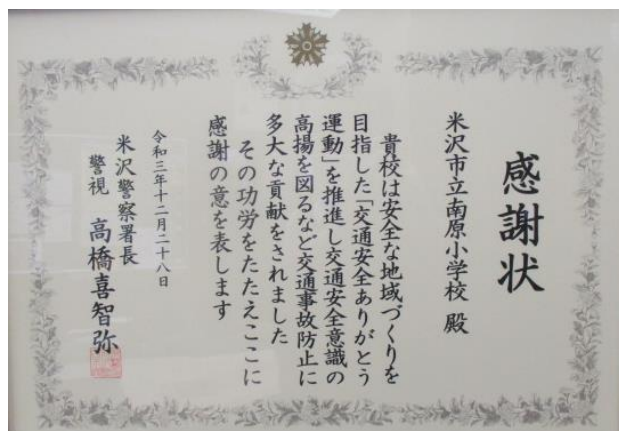 感謝状
米沢市立南原小学校 殿
貴校は安全な地域づくりを
目指した「交通安全ありがとう
運動」を推進し交通安全意識の
高揚を図るなど交通事故防止に
多大な貢献をされました
その功労をたたえここに
感謝の意を表します
令和三年十二月二十八日
米沢警察署長
警視 高橋喜智弥